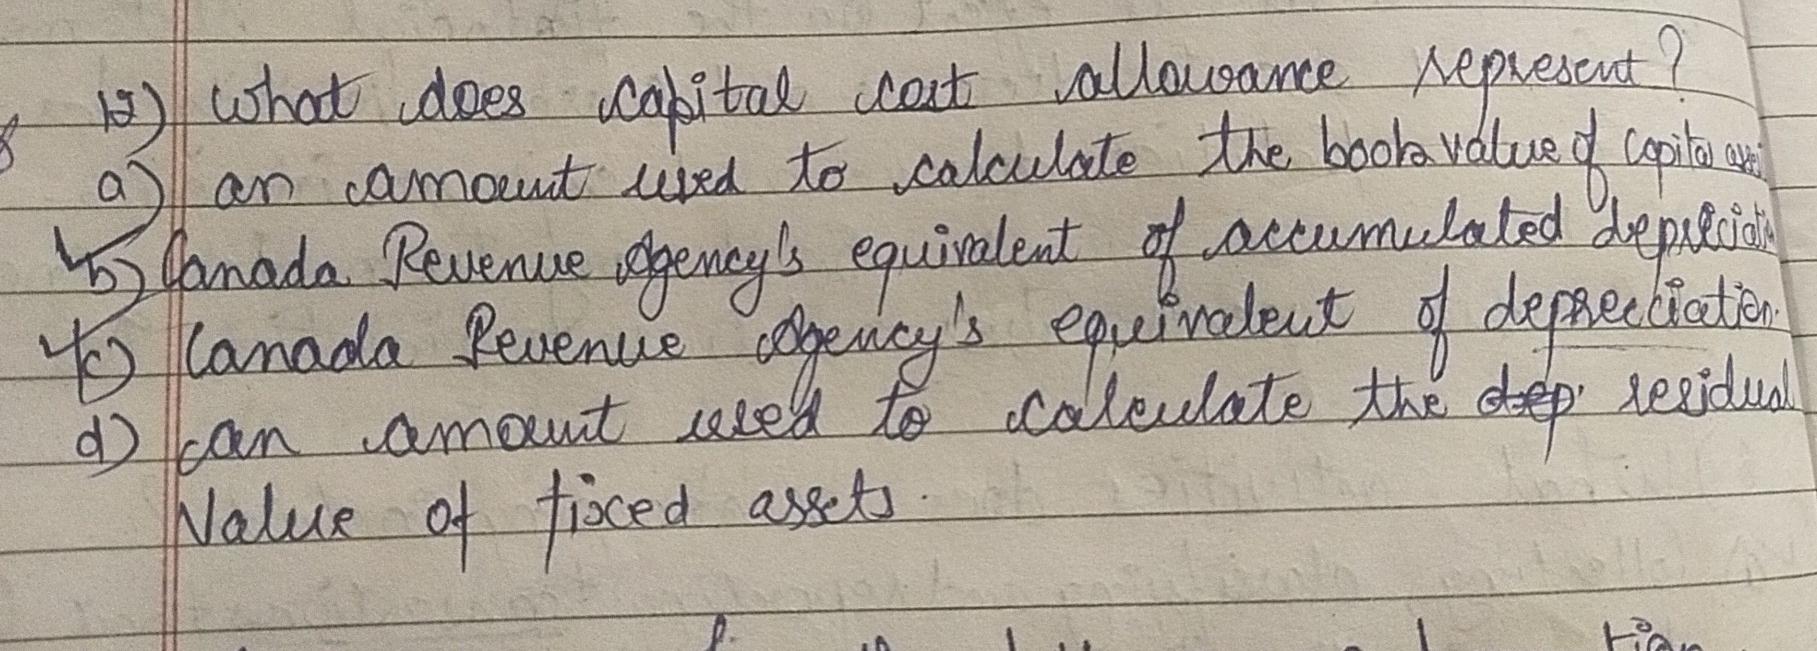 12) What does capital cost allowance represent?
a) an amount used to calculate the book value of capital
b) Canada Revenue Agency's equivalent of accumulated depreciation
c) Canada Revenue Agency's equivalent of depreciation.
d) an amount used to calculate the dep residual
Value of fixed assets.